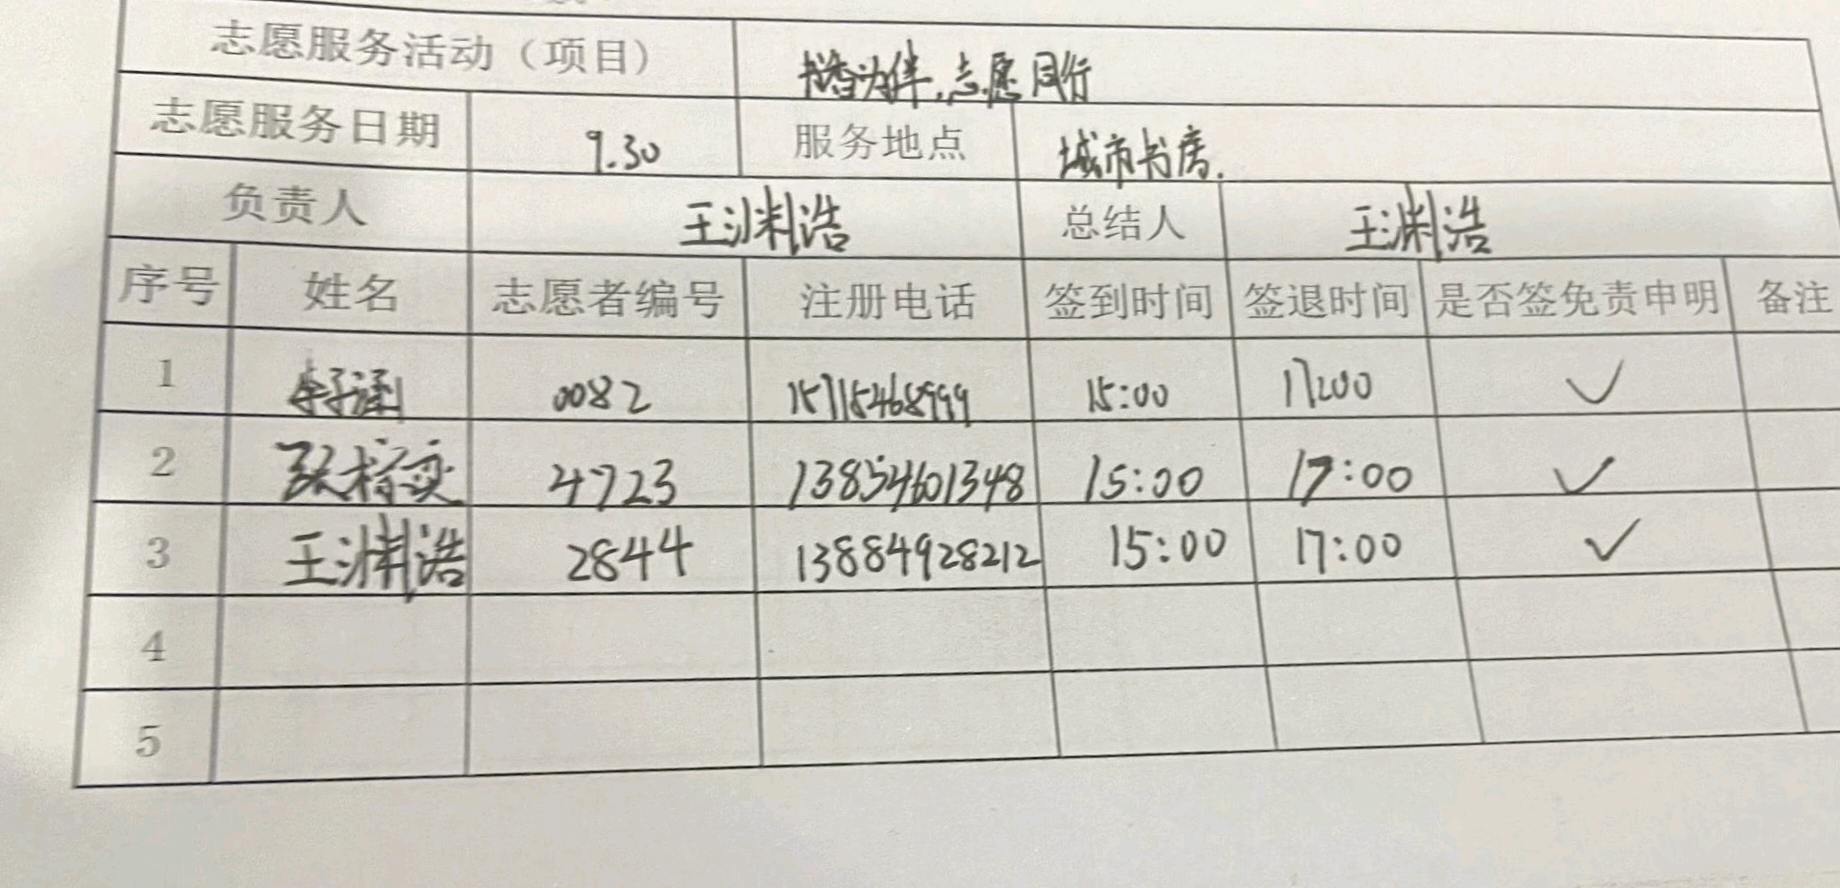 志愿服务活动（项目） 书香为伴，志愿同行
志愿服务日期 9.30 服务地点 城市书房.
负责人 王渊浩 总结人 王渊浩
序号 姓名 志愿者编号 注册电话 签到时间 签退时间 是否签免责申明 备注
1 李子涵 0082 15:00 17:00 ✓
2 张梓奕 4723 13854601348 15:00 17:00 ✓
3 王渊浩 2844 13884928212 15:00 17:00 ✓
4
5